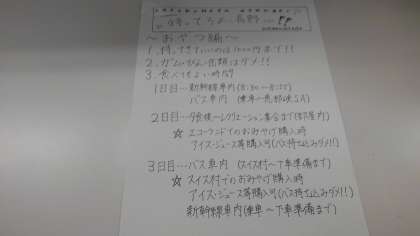 待ってろよ、長野
～おやつ編～
1. 持ってきていいのは1000円まで!!
2. ガム・
類はダメ!!
3. 食べてもよい時間
1日目…新幹線車内
バス車内
2日目…夕食後～レクリエーション集合まで(部屋内)
☆エコーランドでのおみやげ購入時
アイス・ジュース等購入可(バス持ち込みダメ!!)
3日目…バス車内(スイス村～下車準備まで)
☆スイス村でのおみやげ購入時
アイス・ジュース等購入可(バス持ち込みダメ!!)
新幹線車内(乗車～下車準備まで)